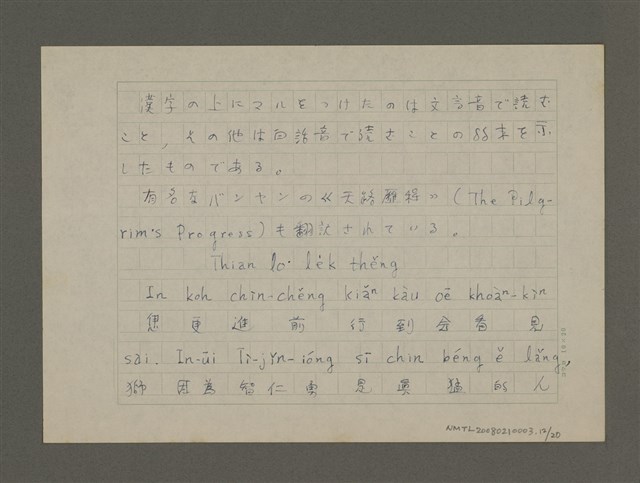 漢字の上にマルをつけたのは文言音で読む
こと，その他は白話音で読むことの約束を示
したものである。
有名なバンヤンの《天路歷程》(The Pilg-
rim's Progress)も翻訳されている。
Thian lō· le̍k thêng
In koh chìn-chêng kiâⁿ kàu oē khoàⁿ-kìn
恁更進前行到會看見
sai. In-ūi Tì-jîn-ióng sī chin béng ê lâng,
獅因爲智仁勇是真猛的人
NMTL20080210003.12/20